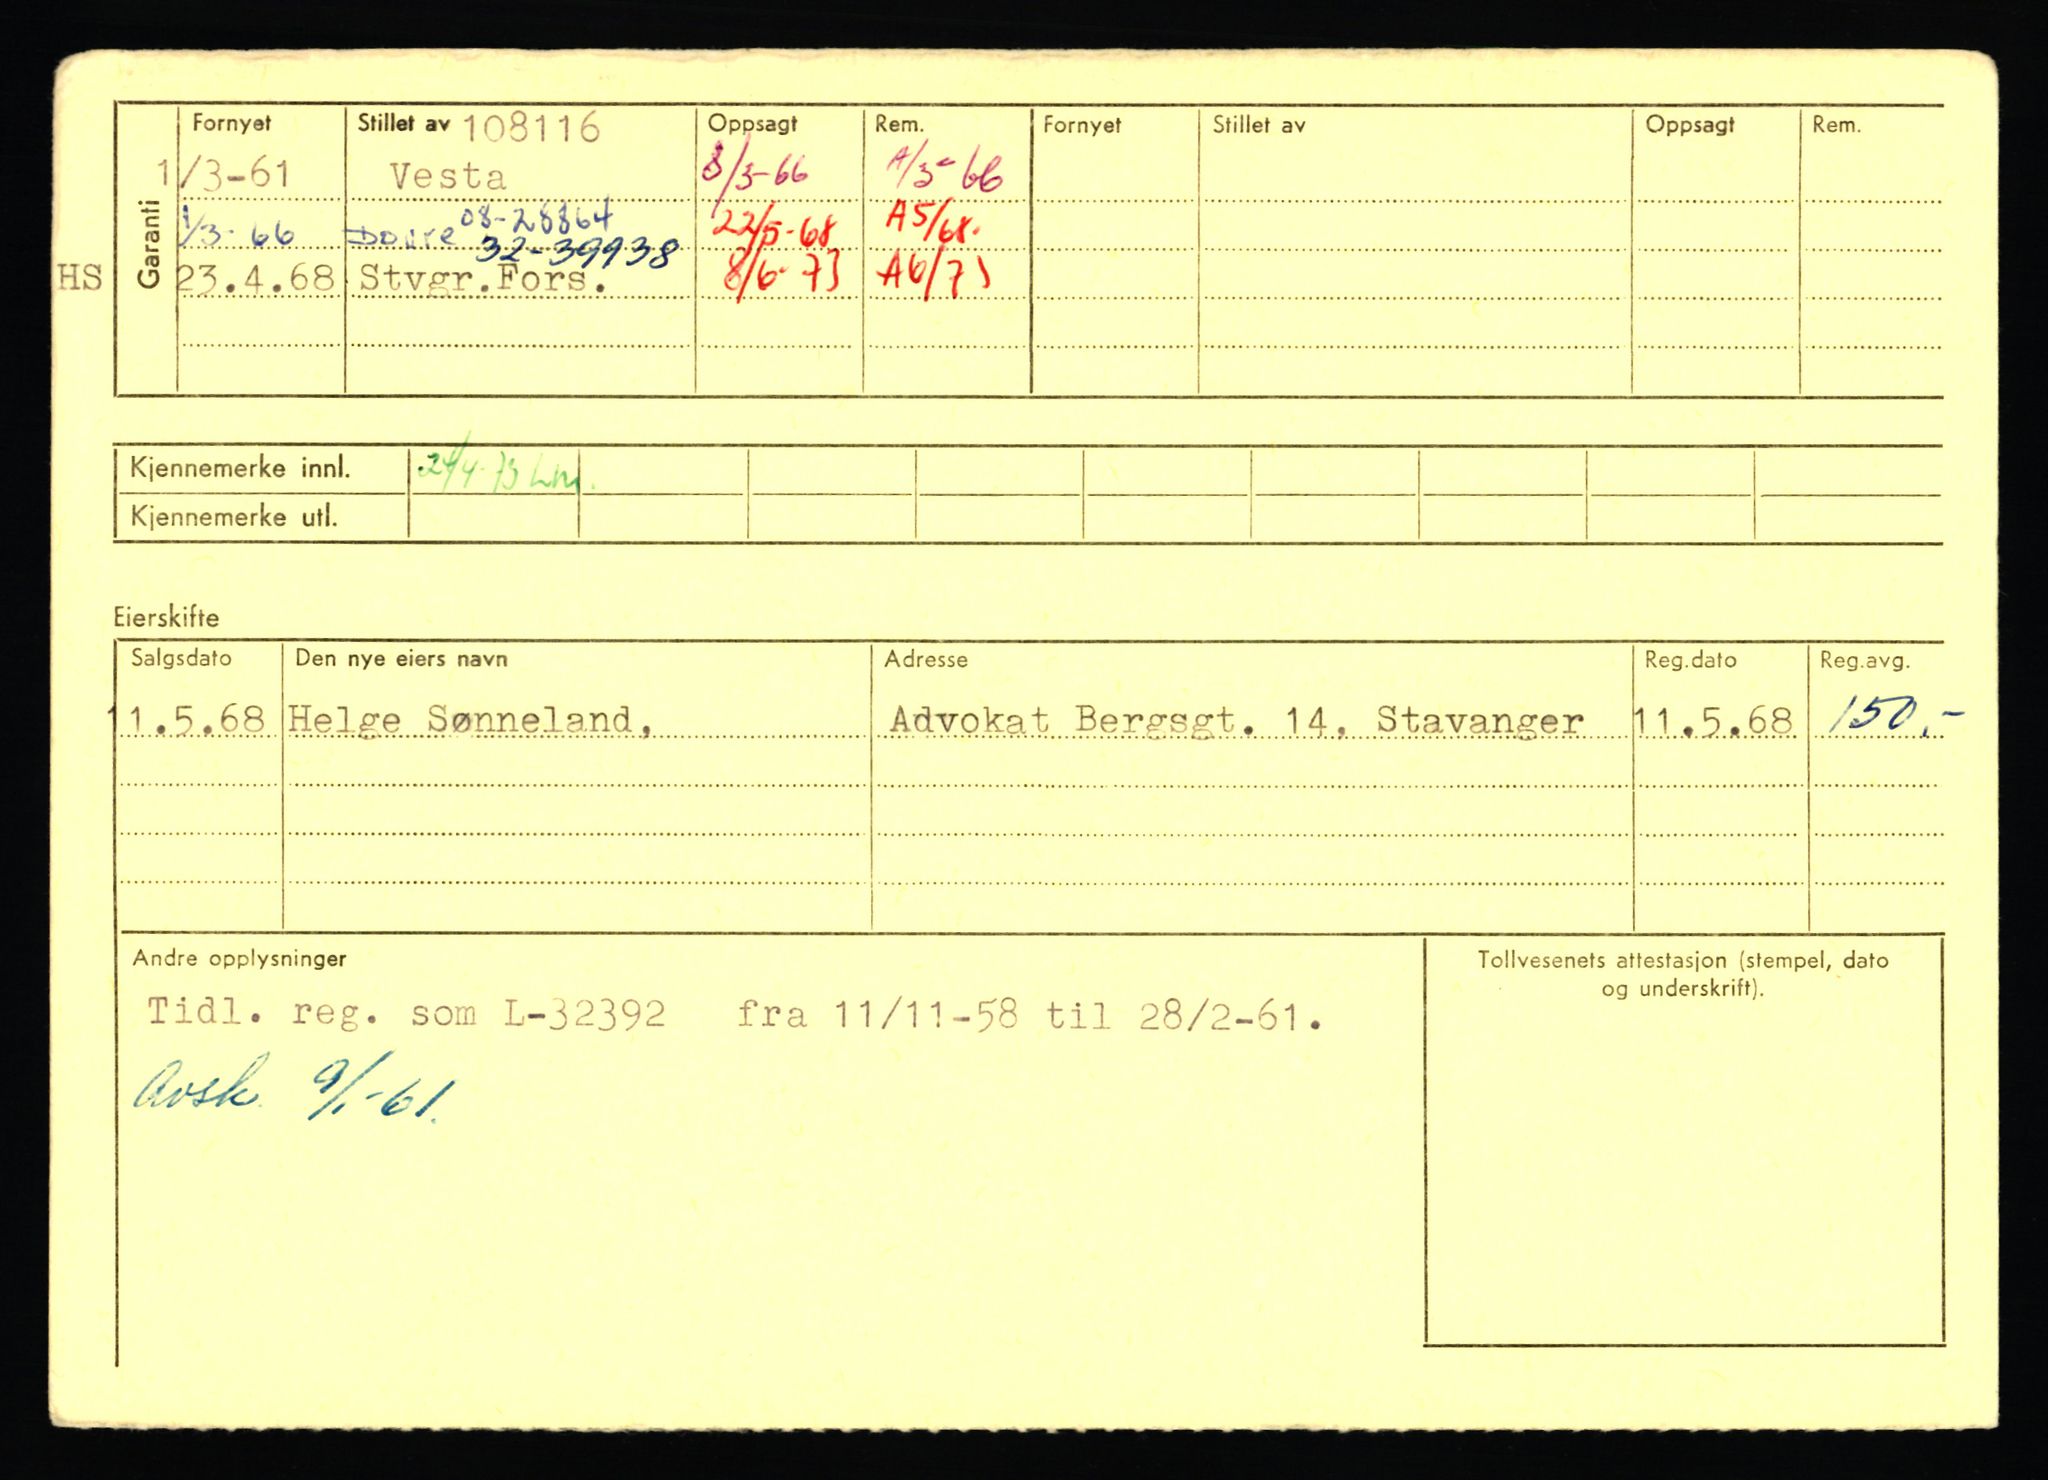 Fornyet Stillet av 108116 Oppsagt Rem. Fornyet Stillet av Oppsagt Rem.
Garanti
1/3-61 Vesta 8/3-66 A/3-66
1/3-66 Dovre 08-28864 22/5-68 A5/68.
32-39938
HS 23.4.68 Stvgr.Fors. 8/6-73 A6/73
Kjennemerke innl. 24/4-73
Kjennemerke utl.
Eierskifte
Salgsdato Den nye eiers navn Adresse Reg.dato Reg.avg.
11.5.68 Helge Sønneland, Advokat Bergsgt. 14, Stavanger 11.5.68 150,-
Andre opplysninger Tollvesenets attestasjon (stempel, dato
og underskrift).
Tidl. reg. som L-32392 fra 11/11-58 til 28/2-61.
Avsk. 9/1-61.